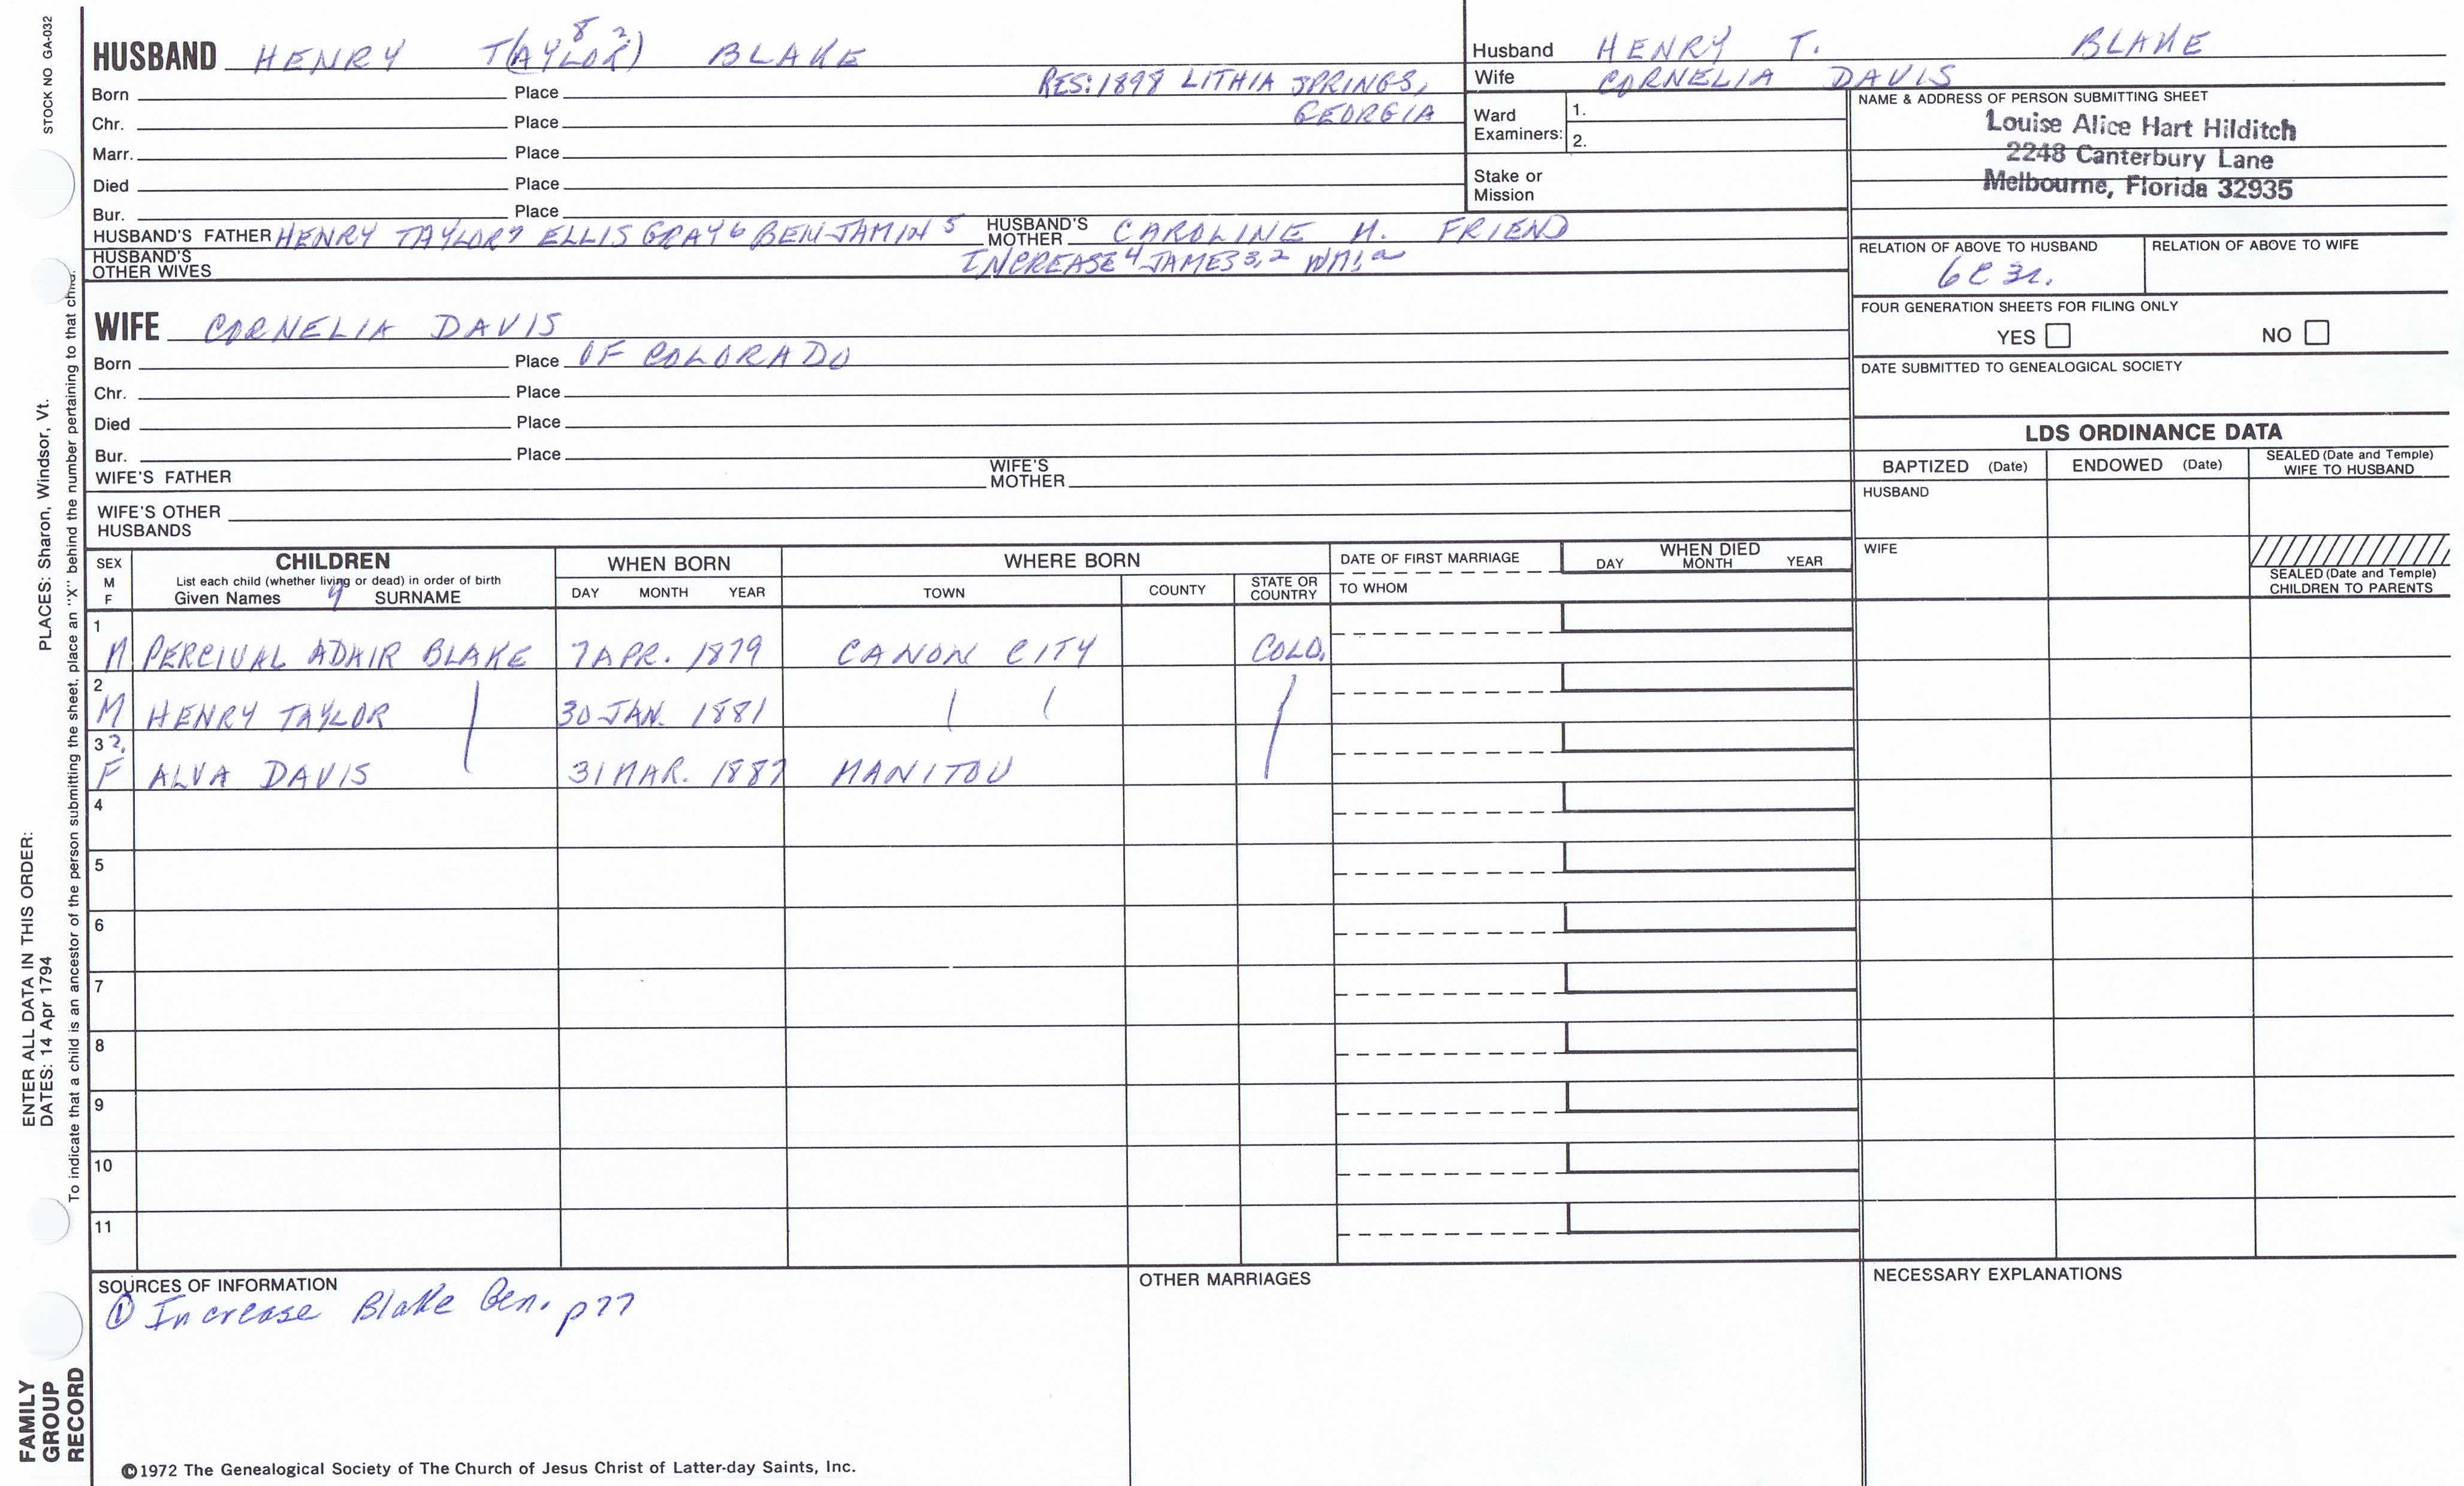 STOCK NO GA-032
HUSBAND HENRY T(AYLOR) 8 ? BLAKE
RES: 1898 LITHIA SPRINGS,
GEORGIA
Born Place
Chr. Place
Marr. Place
Died Place
Bur. Place
HUSBAND'S FATHER HENRY TAYLOR7 ELLIS GRAY6 BENJAMIN5 HUSBAND'S MOTHER CAROLINE M. FRIEND
HUSBAND'S OTHER WIVES INCREASE4 JAMES3,2 WM1,a
WIFE CORNELIA DAVIS
Born Place OF COLORADO
Chr. Place
Died Place
Bur. Place
WIFE'S FATHER WIFE'S MOTHER
WIFE'S OTHER HUSBANDS
Husband HENRY T. BLAKE
Wife CORNELIA DAVIS
Ward Examiners: 1.
2.
Stake or Mission
NAME & ADDRESS OF PERSON SUBMITTING SHEET
Louise Alice Hart Hilditch
2248 Canterbury Lane
Melbourne, Florida 32935
RELATION OF ABOVE TO HUSBAND RELATION OF ABOVE TO WIFE
6C 3r.
FOUR GENERATION SHEETS FOR FILING ONLY
YES NO
DATE SUBMITTED TO GENEALOGICAL SOCIETY
LDS ORDINANCE DATA
BAPTIZED (Date) ENDOWED (Date) SEALED (Date and Temple) WIFE TO HUSBAND
HUSBAND
WIFE
SEALED (Date and Temple) CHILDREN TO PARENTS
SEX M F CHILDREN WHEN BORN WHERE BORN DATE OF FIRST MARRIAGE WHEN DIED
List each child (whether living or dead) in order of birth
Given Names 9 SURNAME DAY MONTH YEAR TOWN COUNTY STATE OR COUNTRY TO WHOM DAY MONTH YEAR
1 M PERCIVAL ADAIR BLAKE 7 APR. 1879 CANON CITY COLO.
2 M HENRY TAYLOR 30 JAN. 1881
3 ?. F ALVA DAVIS 31 MAR. 1887 MANITOU
4
5
6
7
8
9
10
11
SOURCES OF INFORMATION
① Increase Blake Gen. p77
OTHER MARRIAGES
NECESSARY EXPLANATIONS
©1972 The Genealogical Society of The Church of Jesus Christ of Latter-day Saints, Inc.
FAMILY GROUP RECORD
ENTER ALL DATA IN THIS ORDER:
DATES: 14 Apr 1794
PLACES: Sharon, Windsor, Vt.
To indicate that a child is an ancestor of the person submitting the sheet, place an "X" behind the number pertaining to that child.